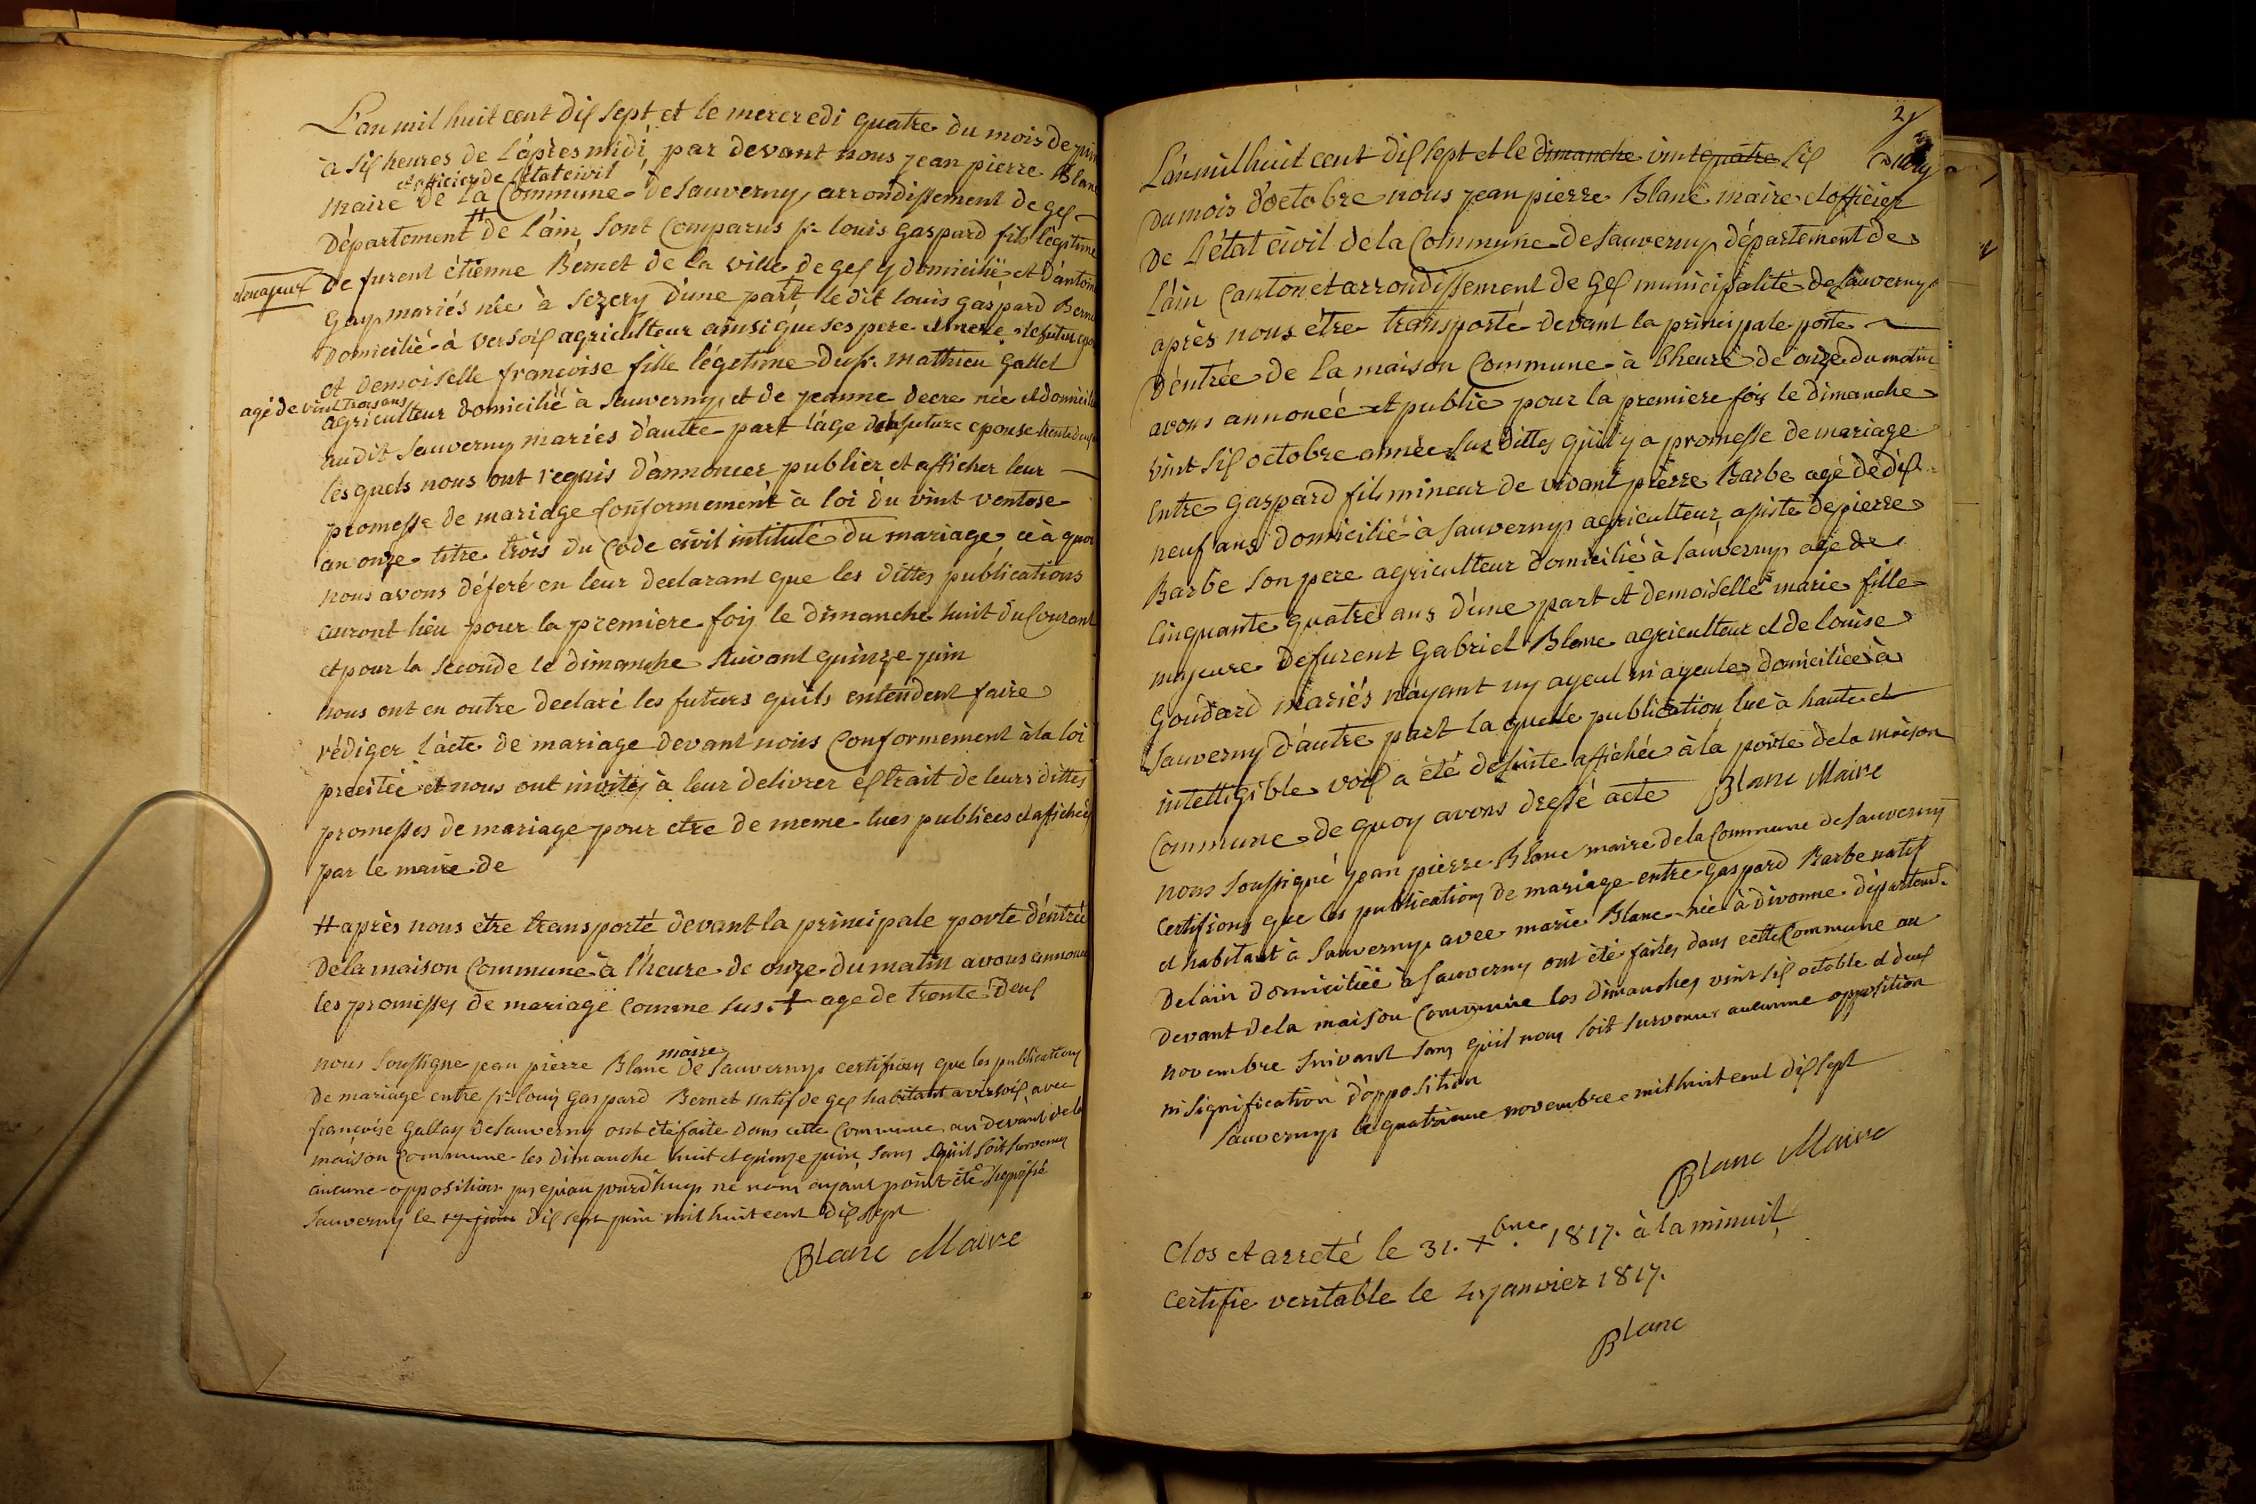 L'an mil huit cent dix sept et le mercredi quatre du mois de juin
à six heures de l'après midi, par devant nous jean pierre Blanc
et officier de l'état civil
maire de la Commune de Sauverny, arrondissement de gex
Département # de l'ain sont comparus sr. louis gaspard fils légitime
de furent étienne Bernet de la ville de gex y domicilié et d'antoin
gay mariés née à Sezery d'une part ledit louis gaspard Berne
Domicilié à versoix agriculteur ainsi que ses pere et mere le futur
et Demoiselle françoise fille légetime du sr. mathieu gallet
agé de vint trois ans
agriculteur domicilié à Sauverny, et de jeanne decre née et domicilié
audit Sauverny mariés d'autre part l'age de la future epouse trente deux
lesquels nous ont requis d'annoncer publier et afficher leur
promesse de mariage conformement à loi du vint ventose
an onze titre trois du Code civil intitulé du mariage, ce à quoi
nous avons déferé en leur declarant que les dittes publications
auront lieu pour la premiere fois le dimanche huit du Courant
et pour la seconde le dimanche suivant quinze juin
nous ont en outre declaré les futurs quils entendent faire
rédiger l'acte de mariage devant nous Conformement à la loi
precitée et nous ont invités à leur delivrer extrait de leurs dittes
promesses de mariage pour etre de meme lues publiees et affichées
par le maire de
# après nous etre transporté devant la principale porte d'entrée
de la maison Commune à l'heure de onze du matin avons annoncé
les promesses de mariage comme sus. + age de trente deux
maire
nous soussigne jean pierre Blanc de Sauverny certifions que les publications
de mariage entre sr louis gaspard Bernet natif de gex habitant a versoix, avec
françoise gallay de Sauverny ont été faite dans cette Commune au devant de la
maison Commune les dimanche huit et quinze juin sans qu'il soit survenu
aucune opposition jusqu'au jourd'huy ne nous ayant point été signifié
Sauverny le 17 juin dix sept juin mil huit cent dix sept
Blanc Maire
2
L'an mil huit cent dix sept et le dimanche vint quatre six
du mois d'octobre nous jean pierre Blanc maire et officier
de l'état civil de la Commune de Sauverny département de
l'ain Canton et arrondissement de Gex municipalité de Sauverny
après nous être transporté devant la principale porte
d'entrée de la maison Commune à l'heure de onze du matin
avons annoncé et publié pour la premiere fois le dimanche
vint six octobre année sus dittes qu'il y a promesse de mariage
entre gaspard fils mineur de vivant pierre Barbe agé de dix
neuf ans domicilié à Sauverny agriculteur, assisté de pierre
Barbe son pere agriculteur domicilié à Sauverny agé de
Cinquante quatre ans d'une part et demoiselle marie fille
majeure defurent Gabriel Blanc agriculteur et de louise
Goudard mariés n'ayant ny ayeul ni ayeule domiciliée à
Sauverny d'autre part la quelle publication lue à haute et
intelligible voix a été desuite affichée à la porte de la maison
Commune de quoy avons dressé acte Blanc Maire
nous soussigné jean pierre Blanc maire de la Commune de Sauverny
certifions que les publications de mariage entre gaspard Barbe natif
et habitant à Sauverny, avec marie Blanc née à divonne départemt.
de lain domiciliée à Sauverny ont été faites dans cette Commune au
devant de la maison Commune les dimanches vint six octobre et deux
novembre suivant sans qu'il nous soit survenu aucunne opposition
ni signification d'opposition
Sauverny le quatrieme novembre mil huit cent dix sept
Blanc Maire
Clos et arreté le 31. Xbre. 1817. à la minuit
certifie veritable le 4 janvier 1817.
Blanc